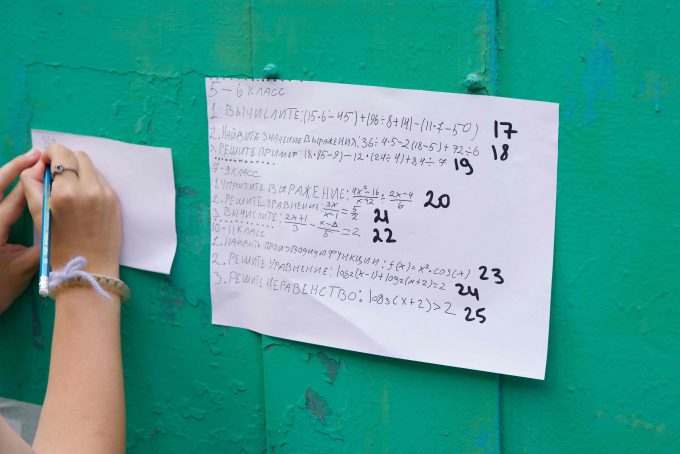 5 – 6 КЛАСС
1. ВЫЧИСЛИТЕ: (15·6 - 45) + (96 ÷ 8 + 14) - (11·7 - 50) 17
2. НАЙДИТЕ ЗНАЧЕНИЕ ВЫРАЖЕНИЯ: 36 ÷ 4·5 - 2(18 - 5) + 72 ÷ 6 18
3. РЕШИТЕ ПРИМЕР: (8·15 - 9) - 12·(24 ÷ 4) + 84 ÷ 7 19
7 - 9 КЛАСС
1. УПРОСТИТЕ ВЫРАЖЕНИЕ: : (2x-4)/6 20
2. РЕШИТЕ УРАВНЕНИЕ: 3x/(x-1) = 5/2 21
3. ВЫЧИСЛИТЕ: (2x+1)/3 - /5 = 2 22
10 - 11 КЛАСС
1. НАЙДИТЕ ПРОИЗВОДНУЮ ФУНКЦИИ: f(x) = x²·cos(x) 23
2. РЕШИТЕ УРАВНЕНИЕ: log2(x-1) + log2(x+2) = 2 24
3. РЕШИТЕ НЕРАВЕНСТВО: log3(x+2) > 2 25